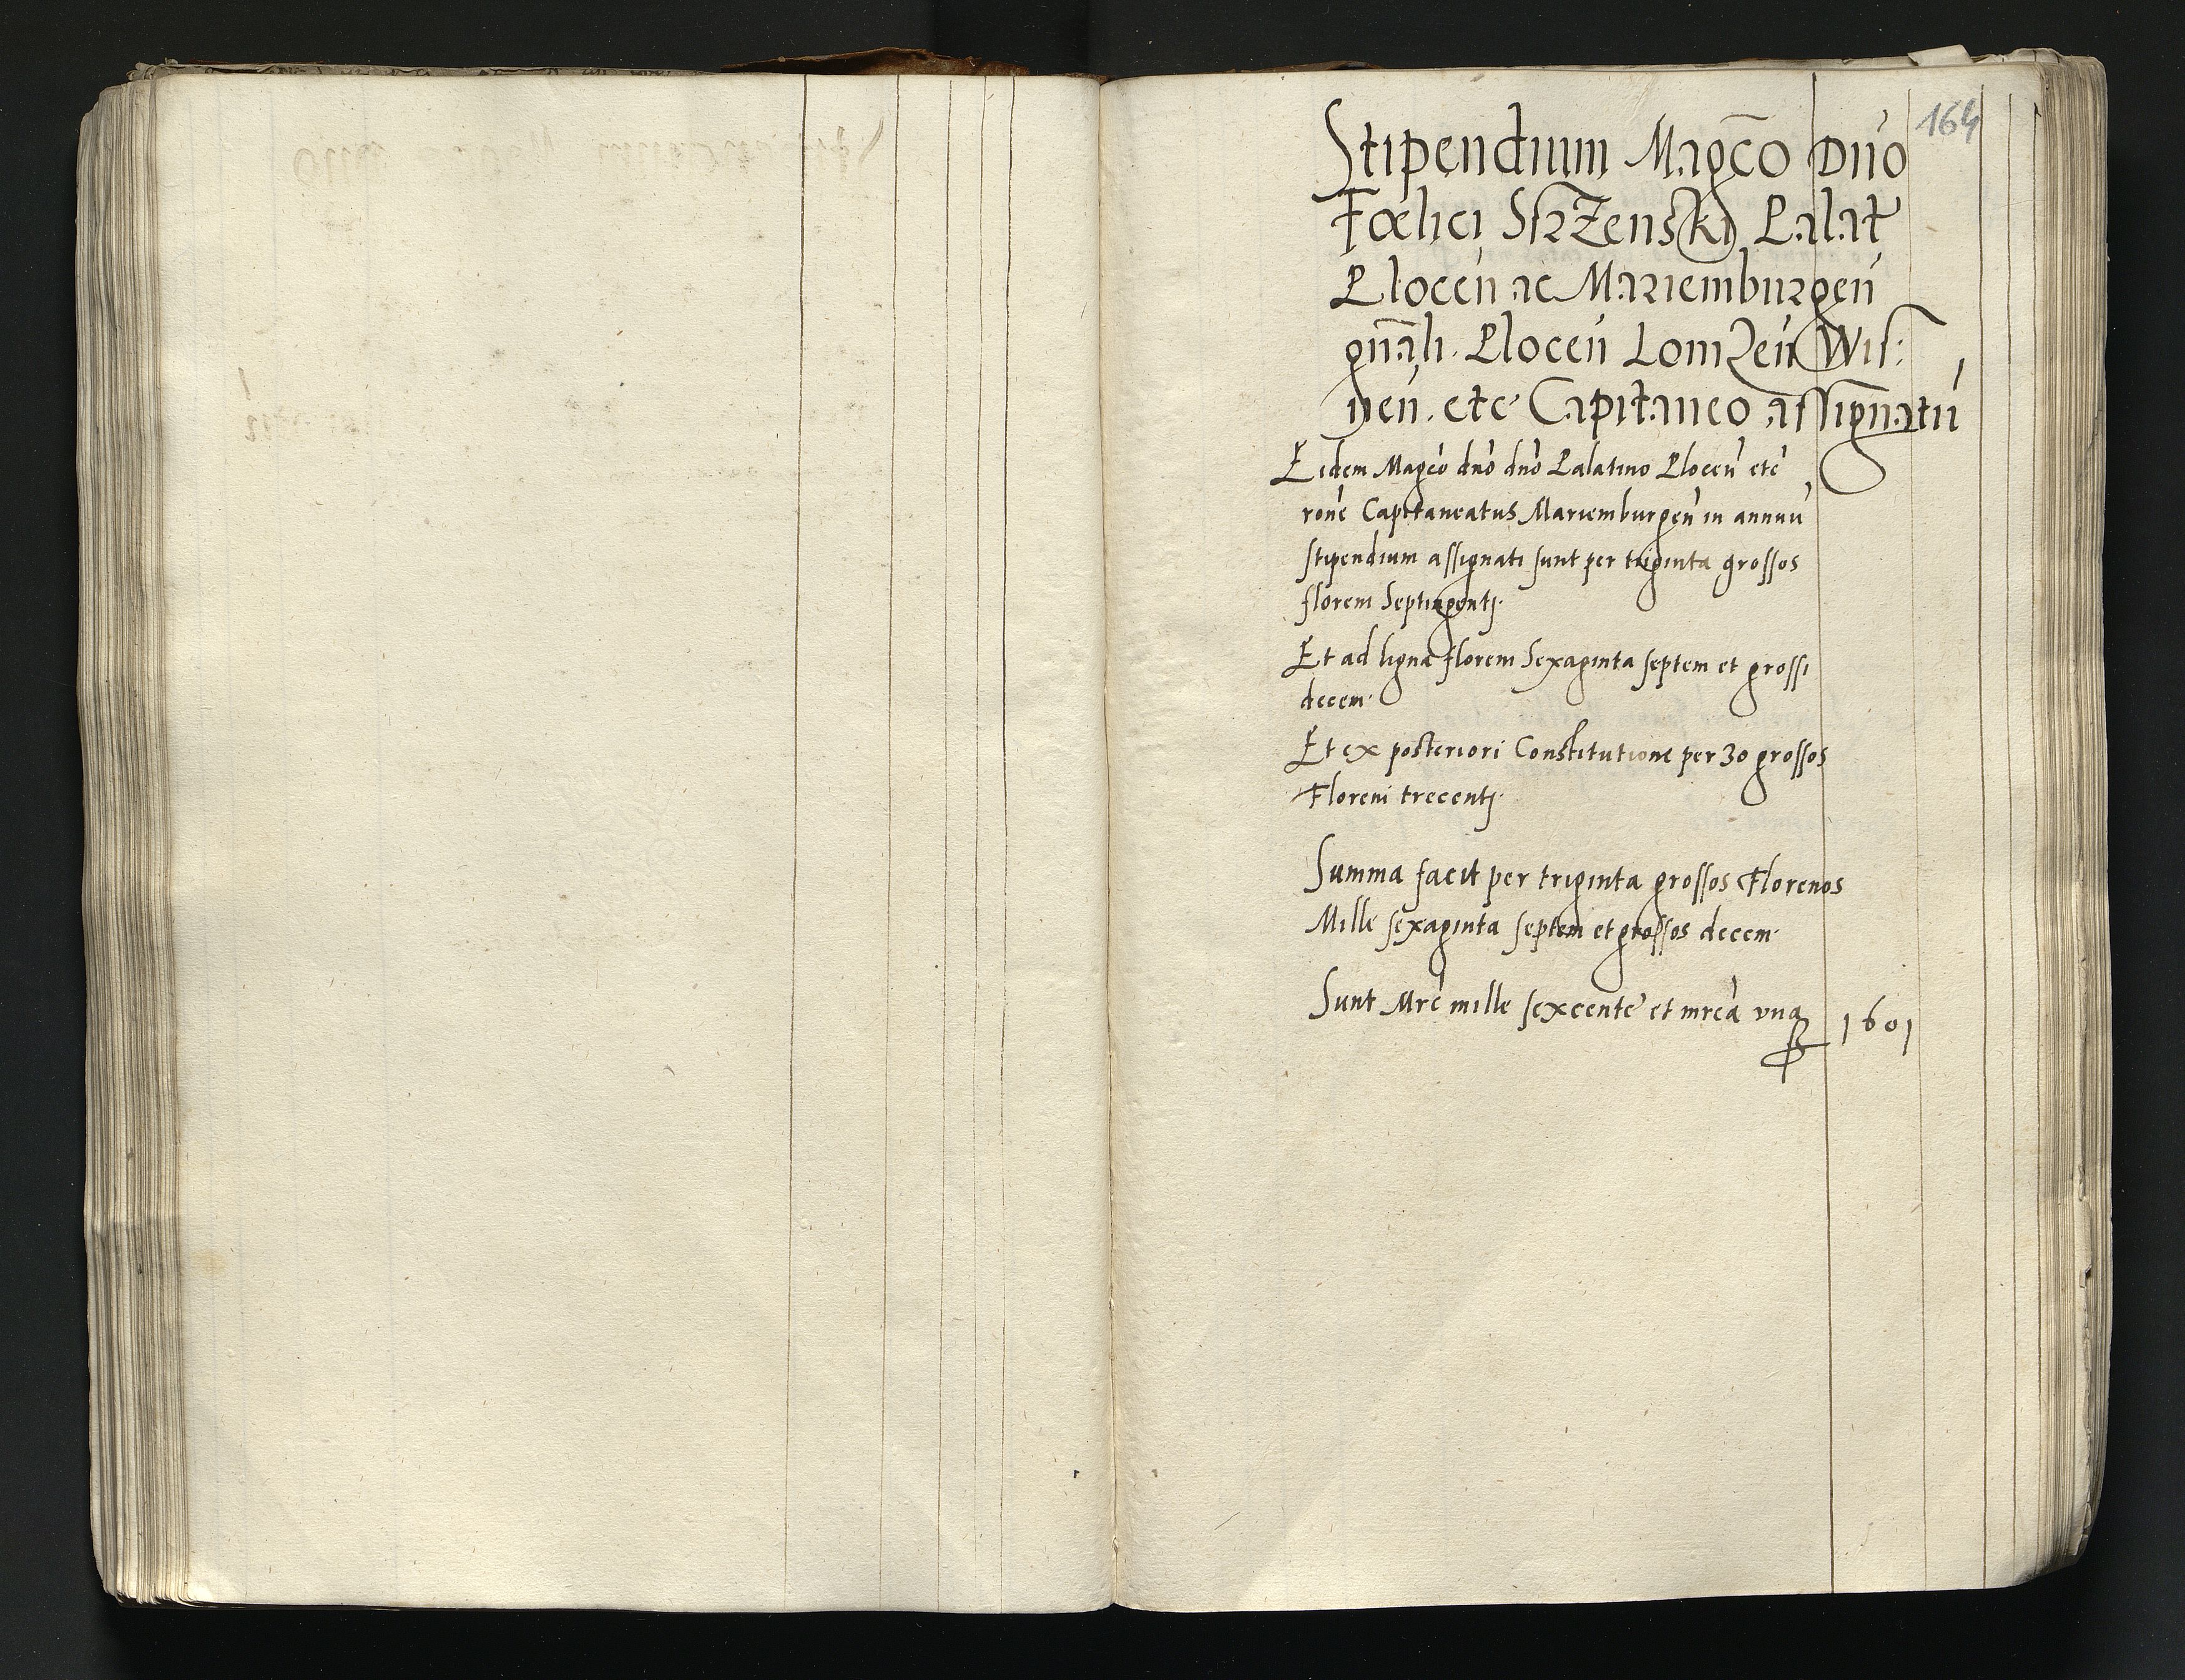 164
Stipendium Magc̄o Dn̄o
Fœlici Srzenski Palat
Plocen̄ ac Mariemburgen̄
gn̄ali. Plocen̄ Lomzen̄ Wis:
nen̄. etc Capitaneo assignatū
Eidem Magc̄o dn̄o dn̄o Palatino Plocen̄ etc̄
rōne Capitaneatus Mariemburgen̄ in annuū
stipendium assignati sunt per triginta grossos
floreni Septingentj.
Et ad ligna floreni Sexaginta septem et grossi
decem.
Et ex posteriori Constitutione per 30 grossos
Floreni trecentj.
Summa facit per triginta grossos Florenos
Mille sexaginta septem et grossos decem.
Sunt Mrc̄ mille sexcente et mrcā vna 1601